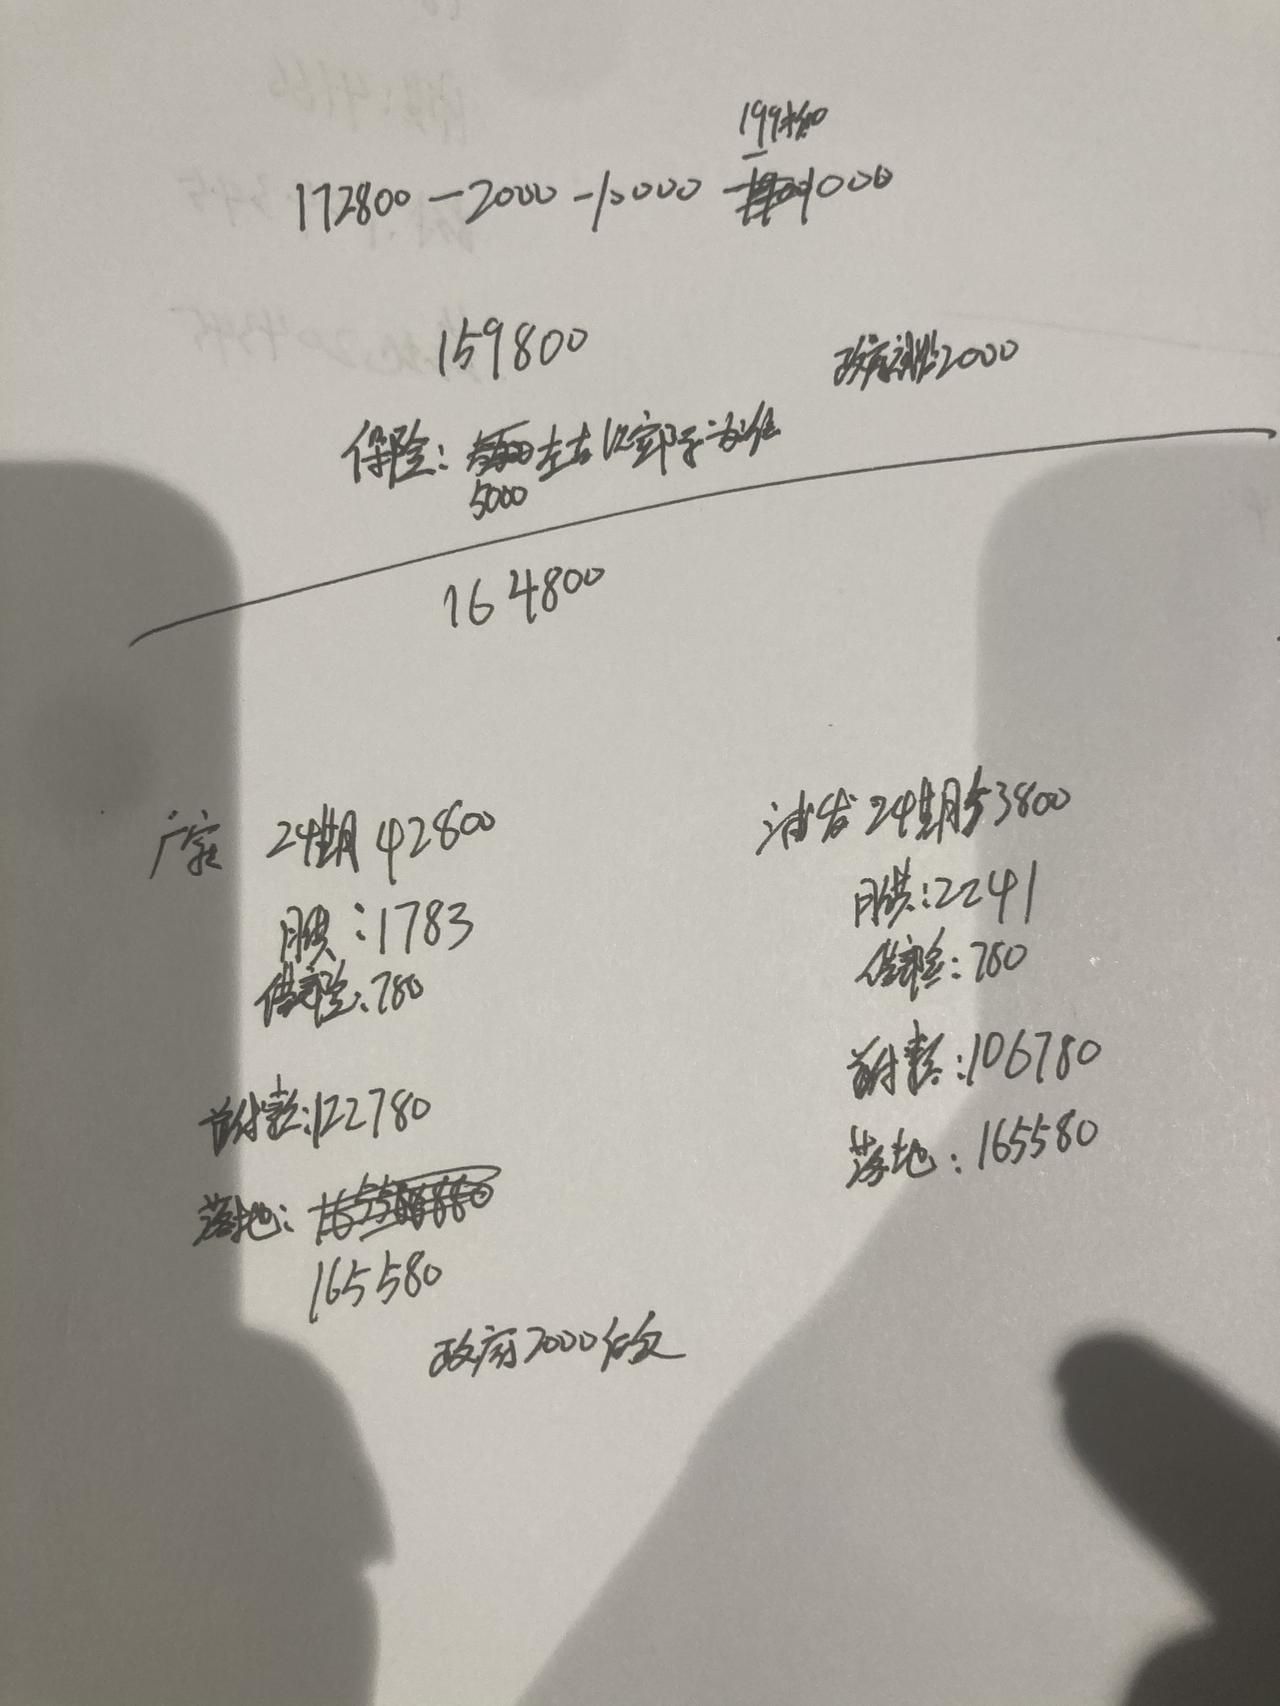 199抵扣
172800-2000-10000-1000
159800
政府补贴2000
保险：左右 以实际为准
5000
164800
厂家 24期 42800
月供：1783
借意险：780
首付款：122780
落地：
165580
政府2000
浦发 24期 53800
月供：2241
借意险：780
首付款：106780
落地：165580